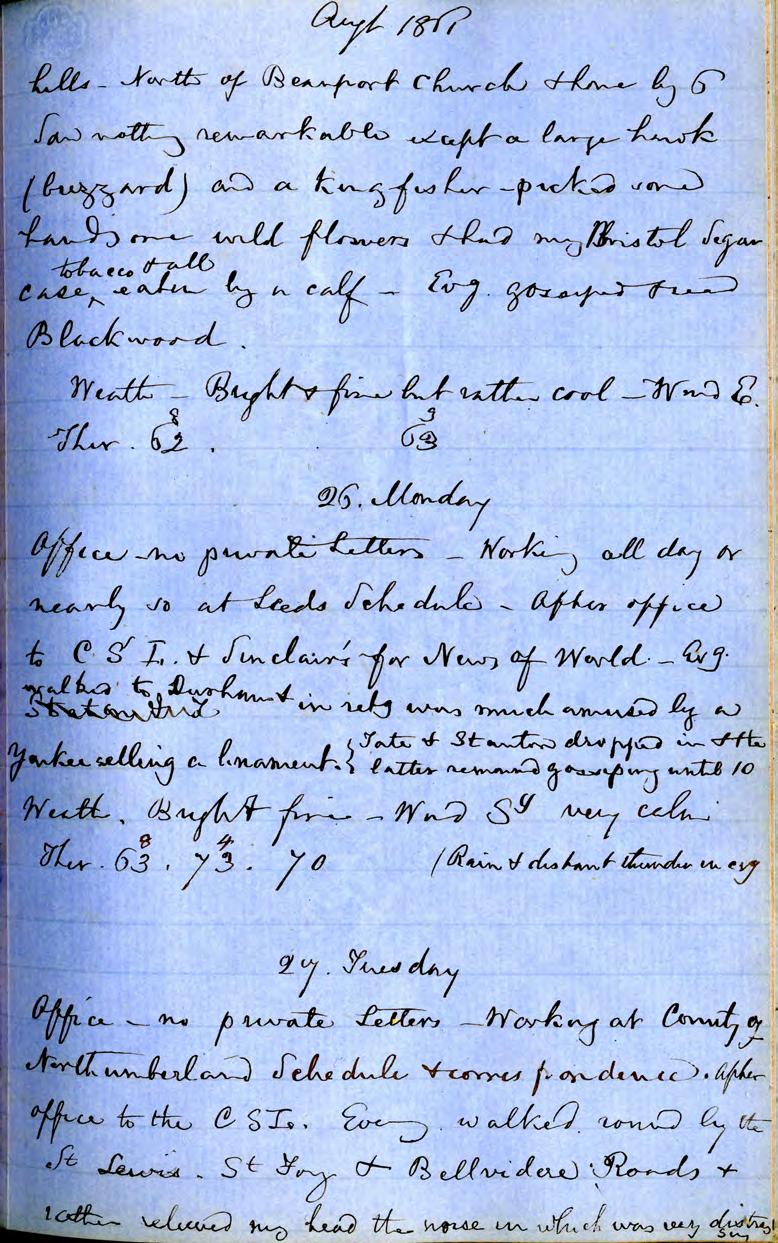 Augt 1861
hills - North of Beauport Church & home by 6
Saw nothing remarkable except a large hawk
(buzzard) and a kingfisher - picked some
handsome wild flowers & had my Bristol Segar
tobacco & all
case, eaten by a calf - Evg. gossiped & read
Blackwood.
Weath - Bright & fine but rather cool - Wind E.
8 3
Ther. 62. 63
26. Monday
Office - no private Letters - Working all day or
nearly so at Leeds Schedule - After office
to C S I. & Sinclair's for News of World. - Evg.
walked to Durham & in retg was much amused by a
Yankee selling a linament. { Tate & Stanton dropped in & the
latter remained gossiping until 10
Weath. Bright & fine - Wind Sy very calm
8 4
Ther. 63. 73. 70 (Rain & distant thunder in evg
27. Tuesday
Office - no private Letters - Working at County of
Northumberland Schedule & correspondence. After
office to the C S I. Eveng. walked round by the
St Lewis. St Foy & Bellvidere Roads &
rather relieved my head the noise in which was very distres
sing